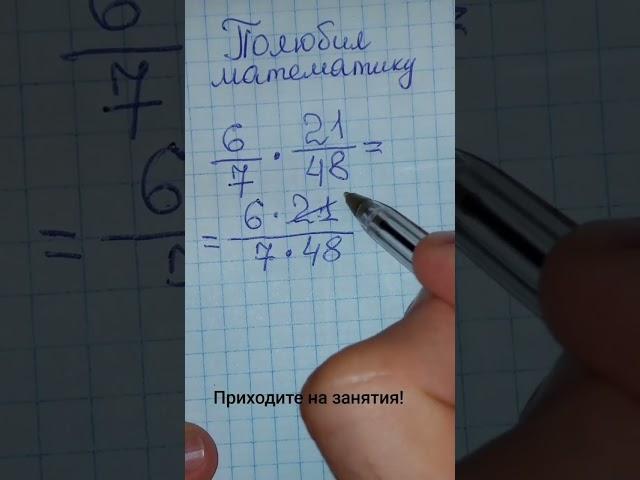 Полюбил
математику
6/7 · 21/48 =
= 6 · 21 / 7 · 48
Приходите на занятия!